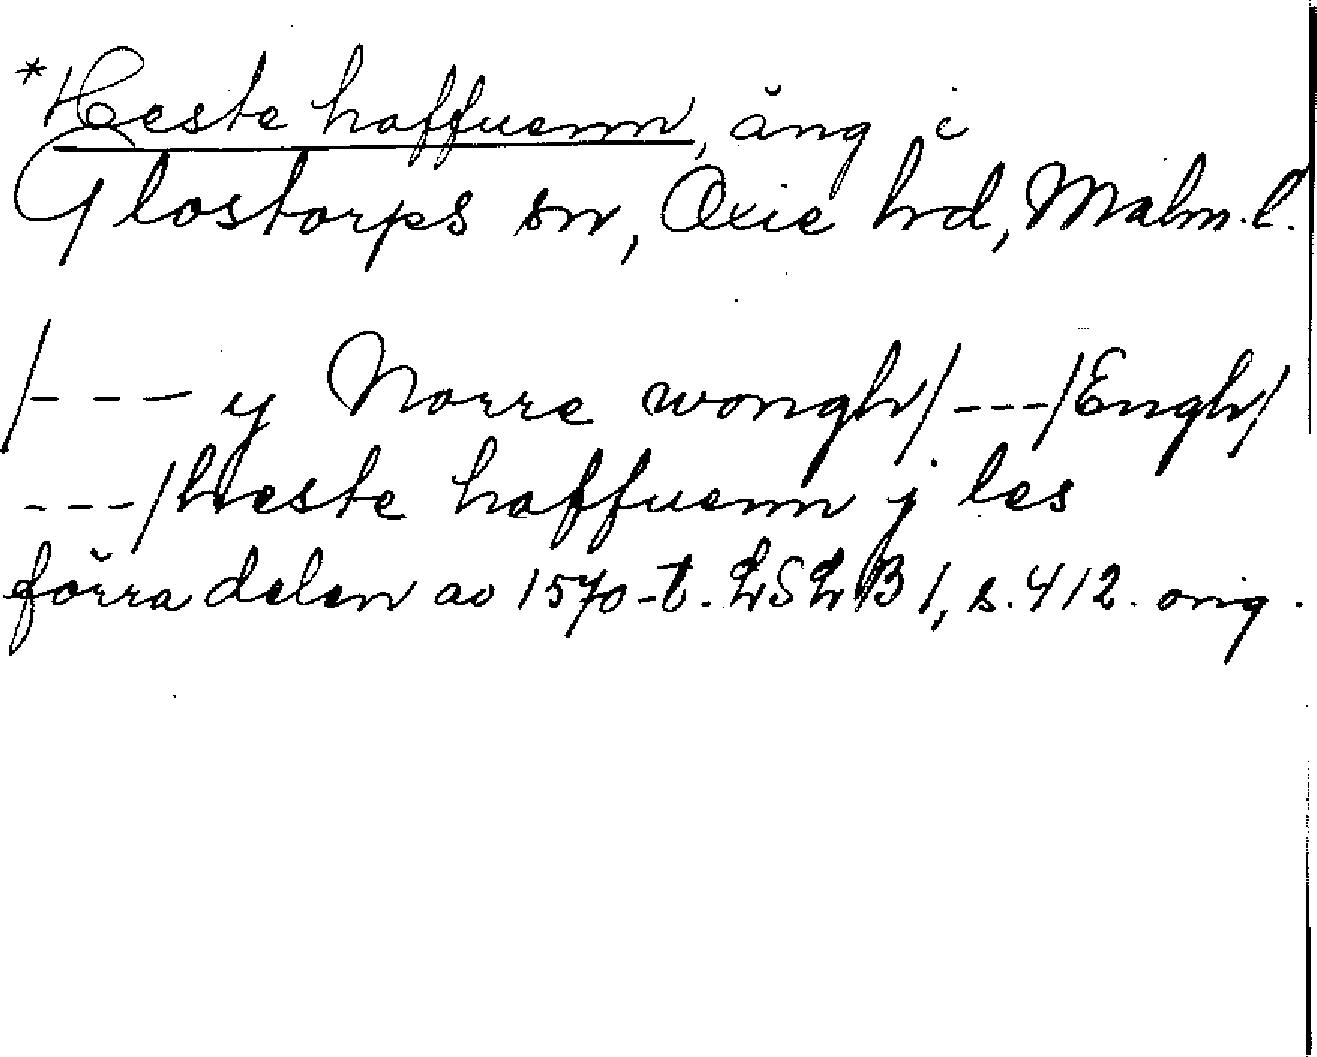 *Heste haffuenn, äng i
Glostorps sn, Oxie hd, Malm. l.
/--- y Norre wongh/---/Engh/
---/heste haffuenn j les
förra delen av 1570-t. LSLB 1, s. 412. orig.